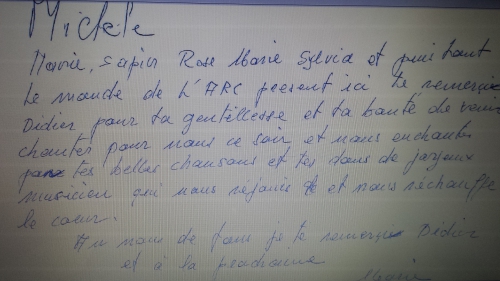 Michèle
Marie, sapin Rose Marie Sylvia et puis tout
le monde de L'ARC present ici te remercie
Didier pour ta gentillesse et ta bonté de venir
chanter pour nous ce soir et nous enchanter
par tes belles chansons et tes dons de joyeux
musicien qui nous réjouis et et nous réchauffe
le cœur.
Au nom de tous je te remercie Didier
et à la prochaine
Marie